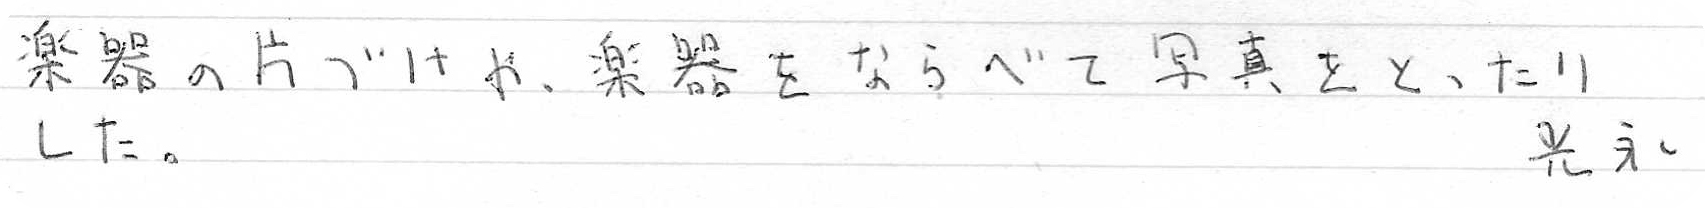 楽器の片づけや、楽器をならべて写真をとったり
した。